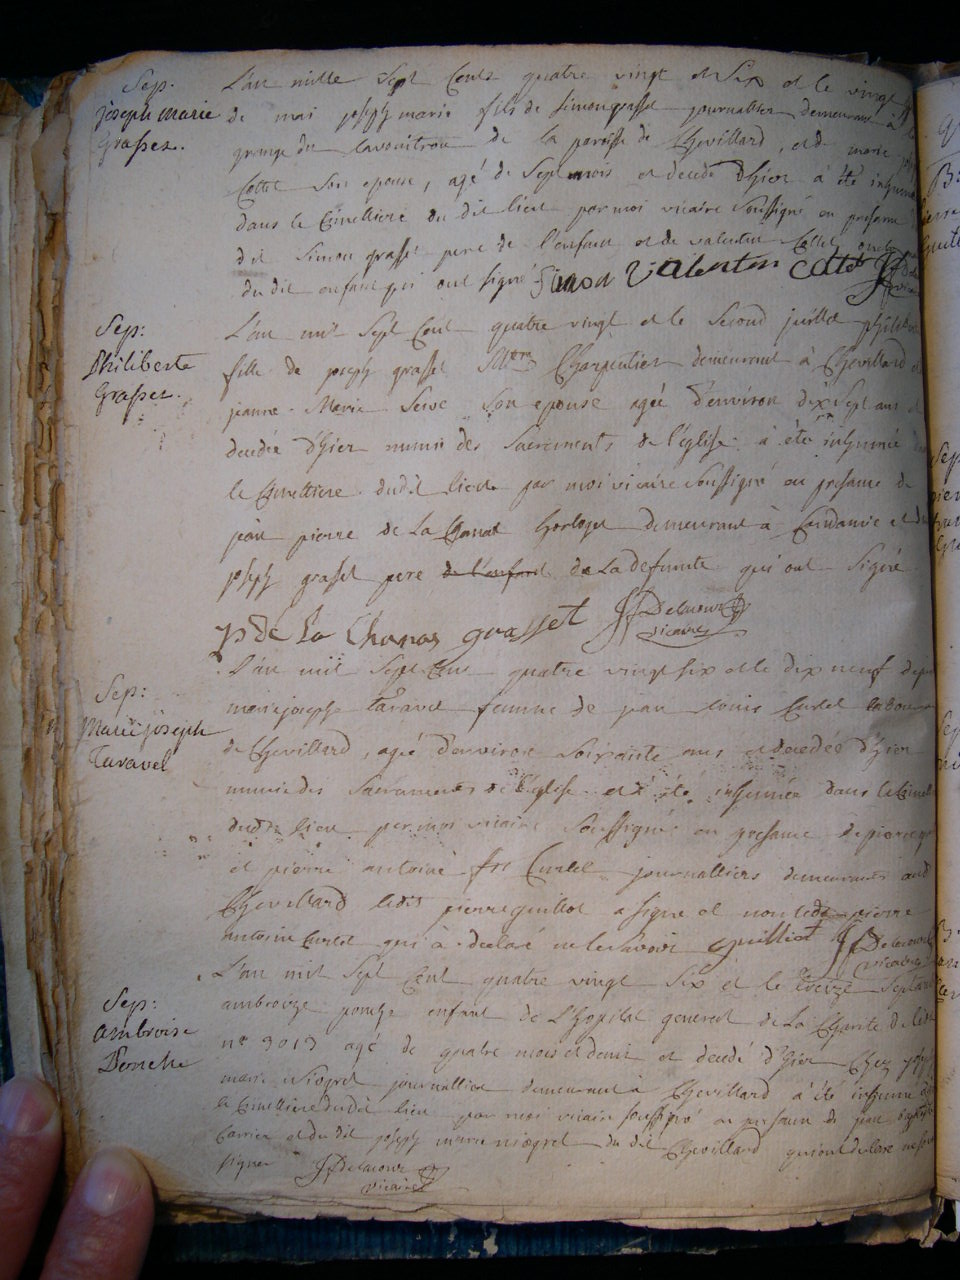 Sep.
joseph marie
Grasset.
L'an mille Sept Cents quatre vingt et Six et le vingt
de mai joseph marie fils de simon grasset journallier demeurant à
grange du de la paroisse de Chevillard, et de marie
Cottet Son epouse, agé de Sept mois et decedé d'hier à été inhumé
dans le Cimettiere du dit lieu par moi vicaire Soussigné en presence
dit Simon grasset pere de l'enfant et de valentin Cottet oncle
du dit enfant qui ont signé Simon valentin cottet
Sep:
Philiberte
Grasset.
L'an mil Sept Cent quatre vingt et le Second juillet
fille de joseph grasset Charpentier demeurant à Chevillard
jeanne Marie Seive Son epouse agée d'environ dix Sept ans
decedée d'hier munie des Sacrements de l'église à été inhumée
le Cimettiere dudit lieu par moi vicaire Soussigné en presence de
jean pierre de La Chanas horloger demeurant à Condamine et
joseph grasset pere de l'enfant de La defunte qui ont Signé
p de La Chanas grasset JF Delacour
vicaire
Sep:
Marie joseph
Taravel
L'an mil Sept Cent quatre vingt six et le dix neuf
marie joseph taravel femme de jean louis Curtet
de Chevillard, agée d'environ Soixante ans et decedée d'hier
munie des Sacrements de l'église et à été inhumée dans le
dudit lieu par moi vicaire Soussigné en presence de pierre
et pierre antoine Curtet journalliers demeurants
Chevillard ledit pierre guillot a signé et non ledit pierre
antoine Curtet qui à declaré ne le Savoir guilliot JF Delacour
vicaire
Sep:
Ambroise
Ponche
L'an mil Sept Cent quatre vingt Six et le treize
ambroize enfant de L'hopital general de La Charité de
n° 3013 agé de quatre mois et demi et decedé d'hier Chez joseph
marie niogret journallier demeurant à Chevillard à été inhumé
le Cimettiere dudit lieu par moi vicaire soussigné en presence de jean
Carrier et du dit joseph marie niogret du dit Chevillard qui ont declaré ne
signer JF Delacour
vicaire